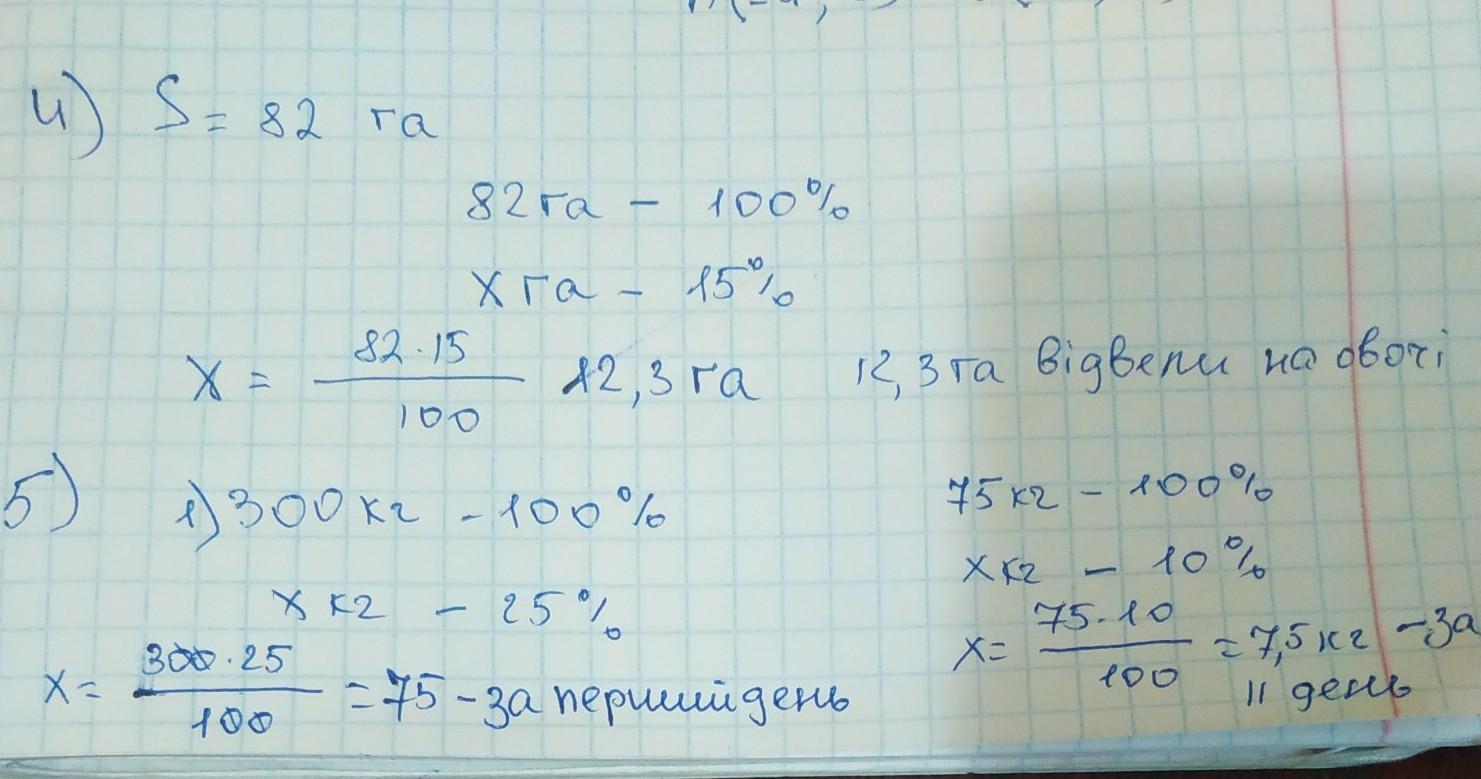 4) S = 82 га
82 га - 100%
x га - 15%
x = 82·15 / 100 12,3 га 12,3 га відвели на овочі
5) 1) 300 кг - 100%
x кг - 25%
x = 300·25 / 100 = 75 - за перший день
75 кг - 100%
x кг - 10%
x = 75·10 / 100 = 7,5 кг - за
II день